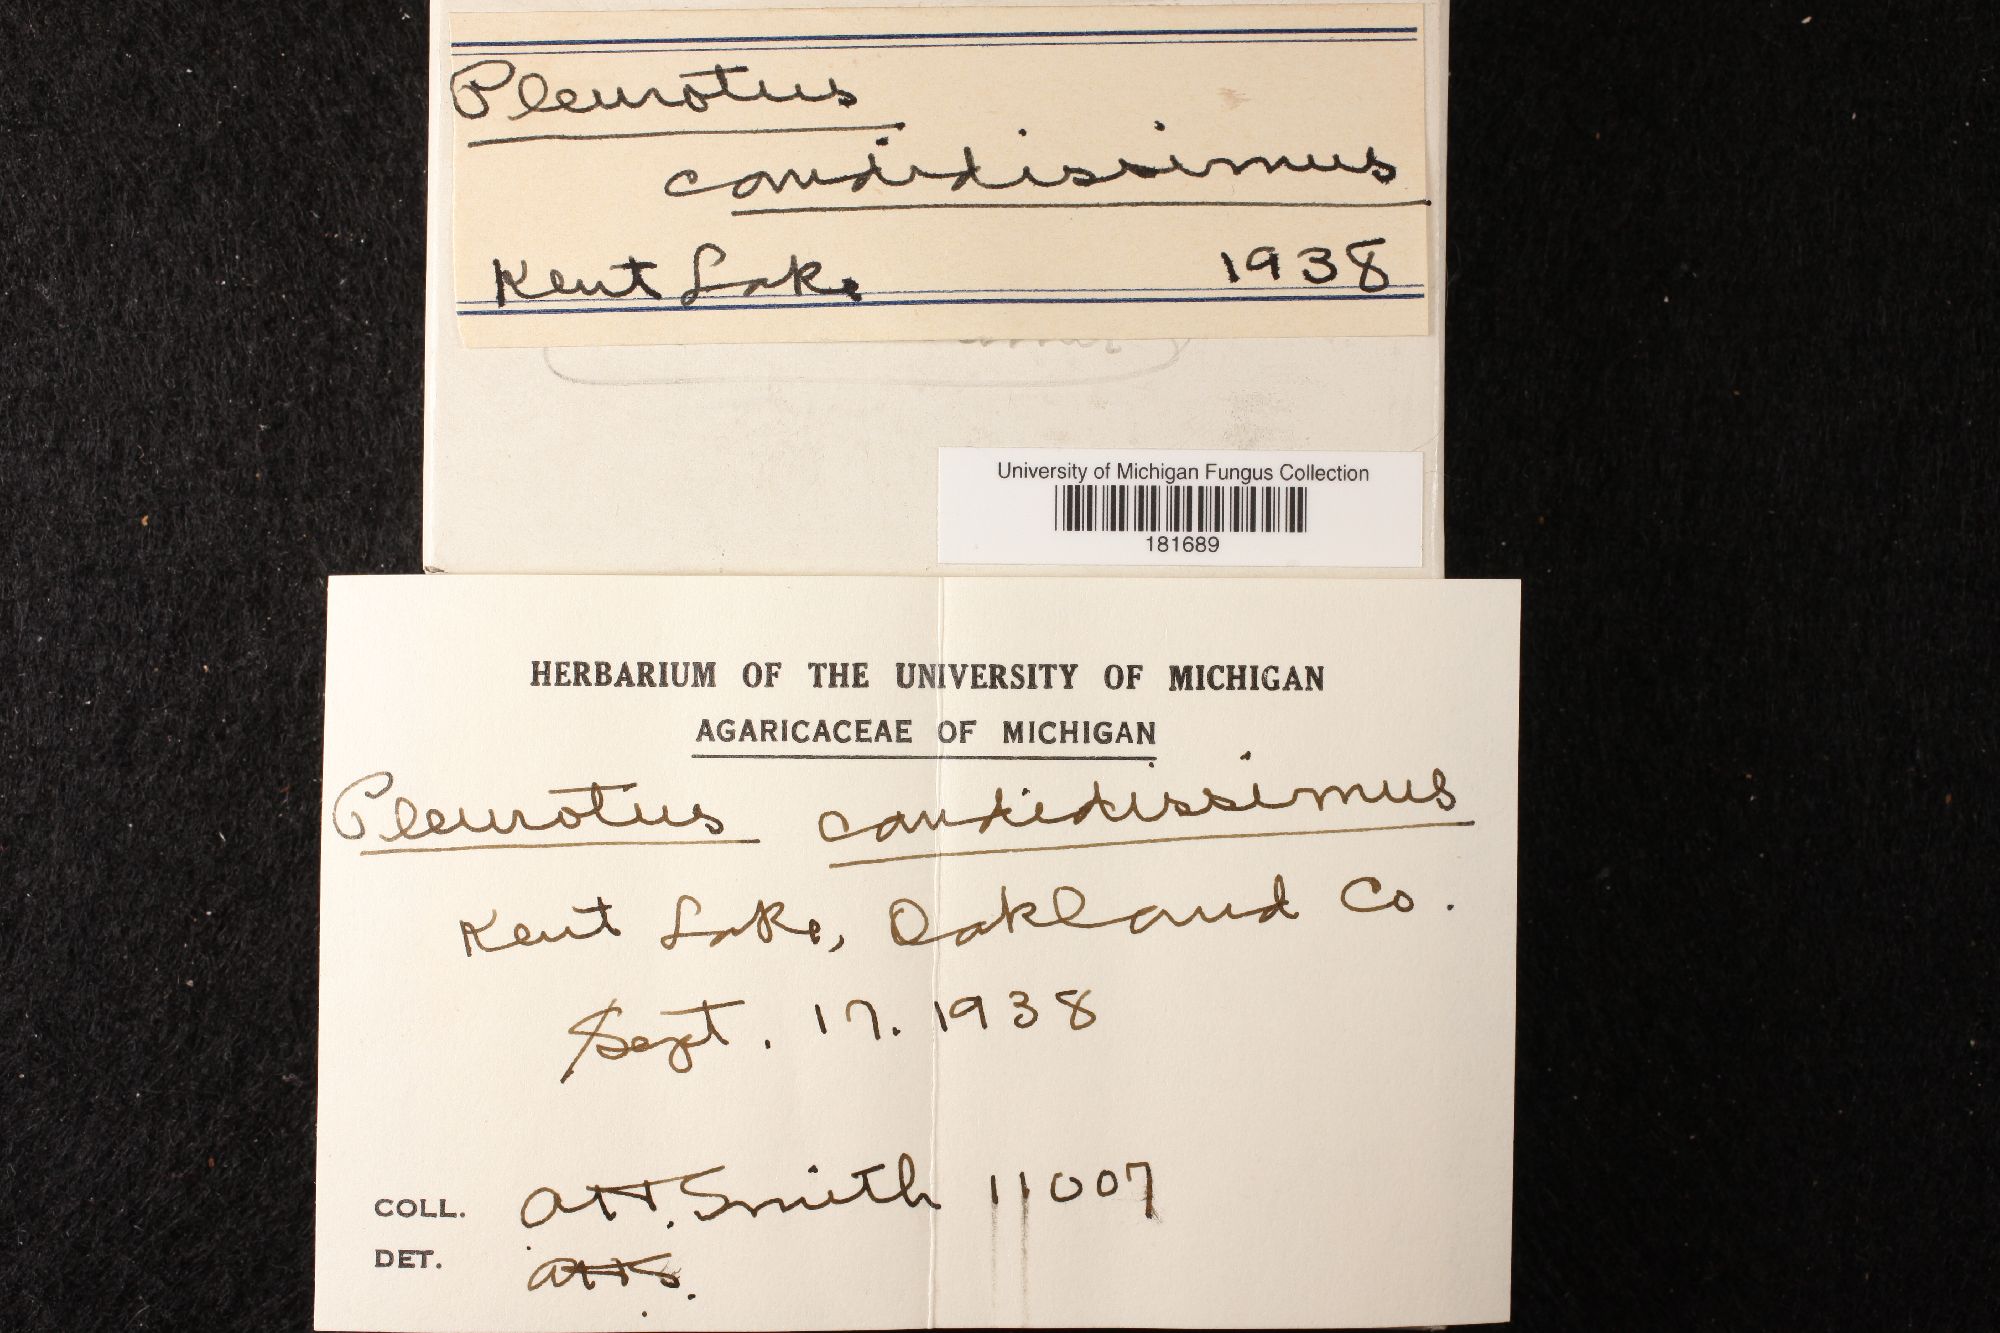 Pleurotus
candidissimus
Kent Lake 1938
University of Michigan Fungus Collection
181689
HERBARIUM OF THE UNIVERSITY OF MICHIGAN
AGARICACEAE OF MICHIGAN
Pleurotus candidissimus
Kent Lake, Oakland Co.
Sept. 17. 1938
COLL. AH.Smith 11007
DET. AHS.